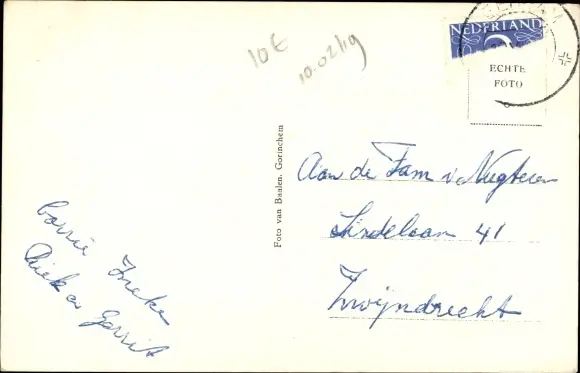 10€
10.02/19
NEDERLAND
ECHTE
FOTO
Foto van Baalen, Gorinchem
Aan de Fam v. Neugteren
Lindelaan 41
Zwijndrecht
Corrie Ineke
Riek en Gerrit